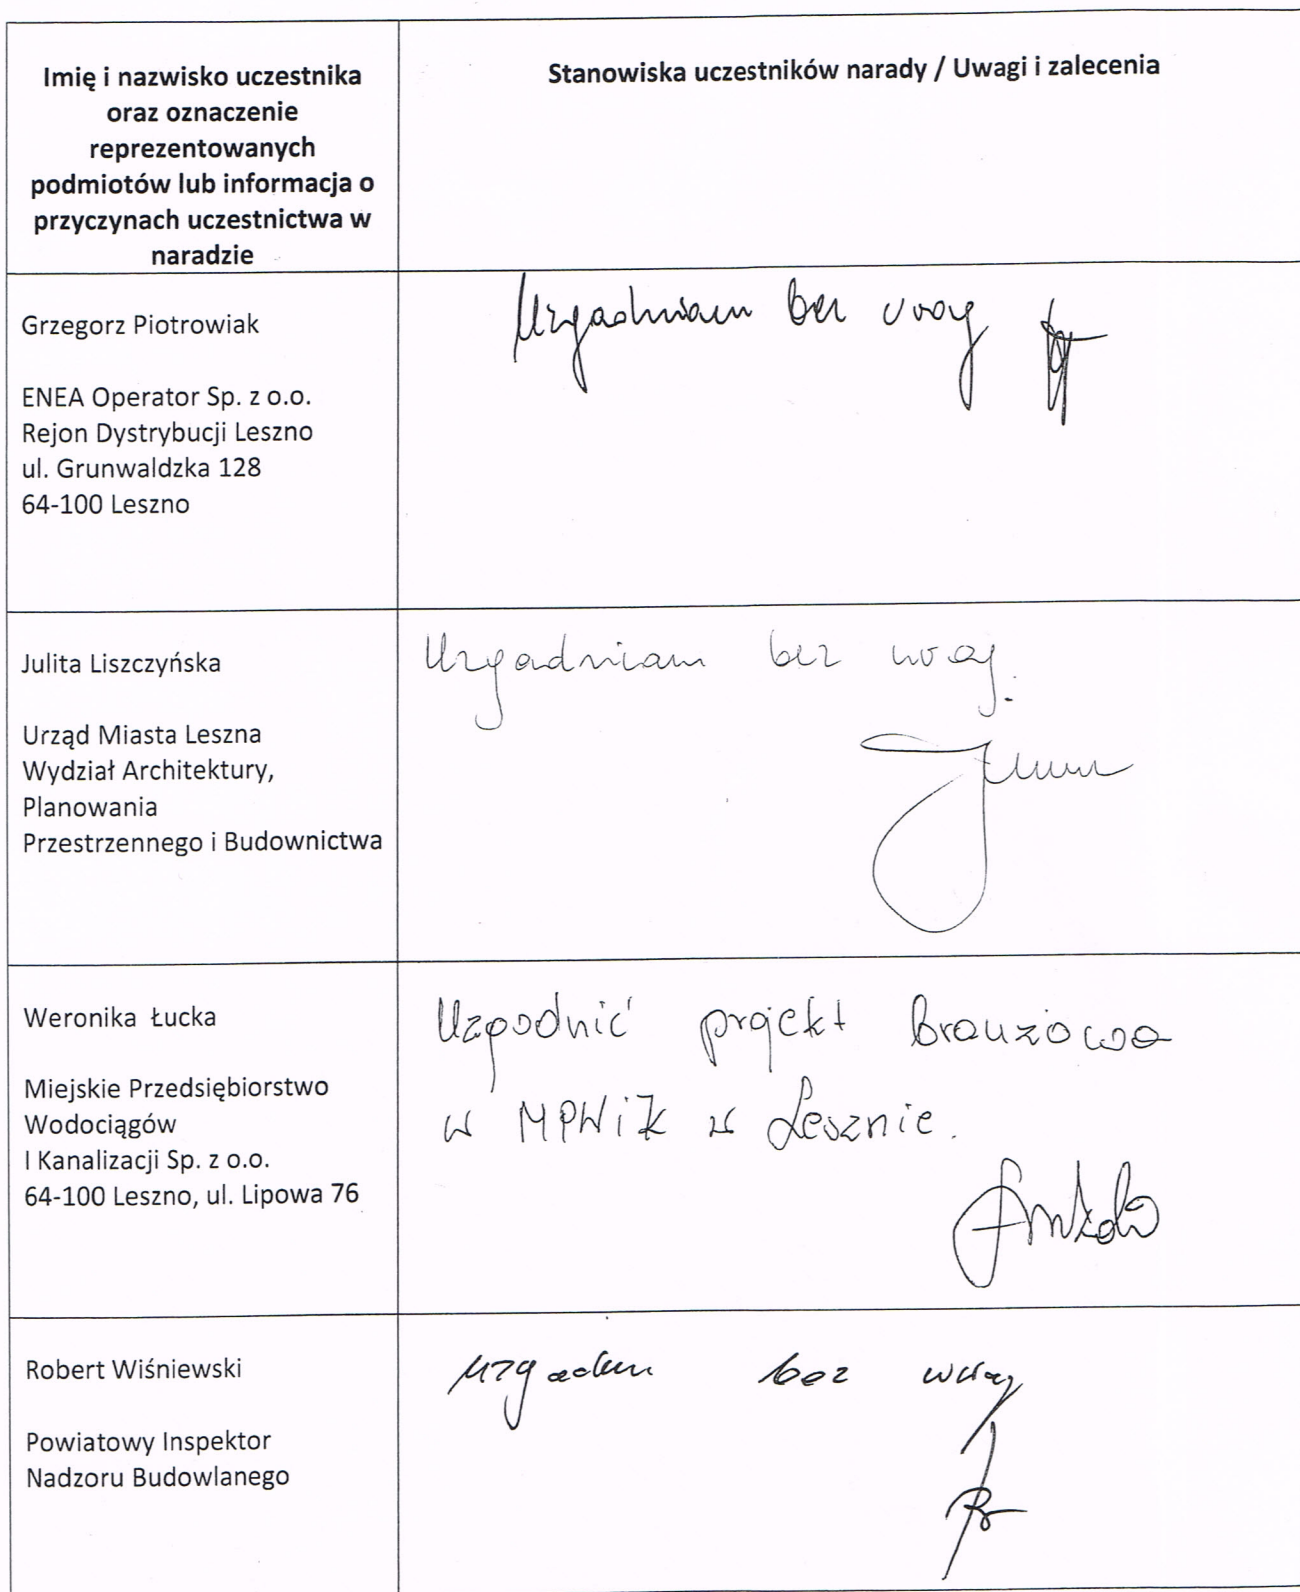 Imię i nazwisko uczestnika
oraz oznaczenie
reprezentowanych
podmiotów lub informacja o
przyczynach uczestnictwa w
naradzie
Stanowiska uczestników narady / Uwagi i zalecenia
Grzegorz Piotrowiak
ENEA Operator Sp. z o.o.
Rejon Dystrybucji Leszno
ul. Grunwaldzka 128
64-100 Leszno
Uzgadniam bez uwag
Julita Liszczyńska
Urząd Miasta Leszna
Wydział Architektury,
Planowania
Przestrzennego i Budownictwa
Uzgadniam bez uwag.
Weronika Łucka
Miejskie Przedsiębiorstwo
Wodociągów
I Kanalizacji Sp. z o.o.
64-100 Leszno, ul. Lipowa 76
Uzgodnić projekt branżowo
w MPWiK w Lesznie.
Robert Wiśniewski
Powiatowy Inspektor
Nadzoru Budowlanego
bez uwag